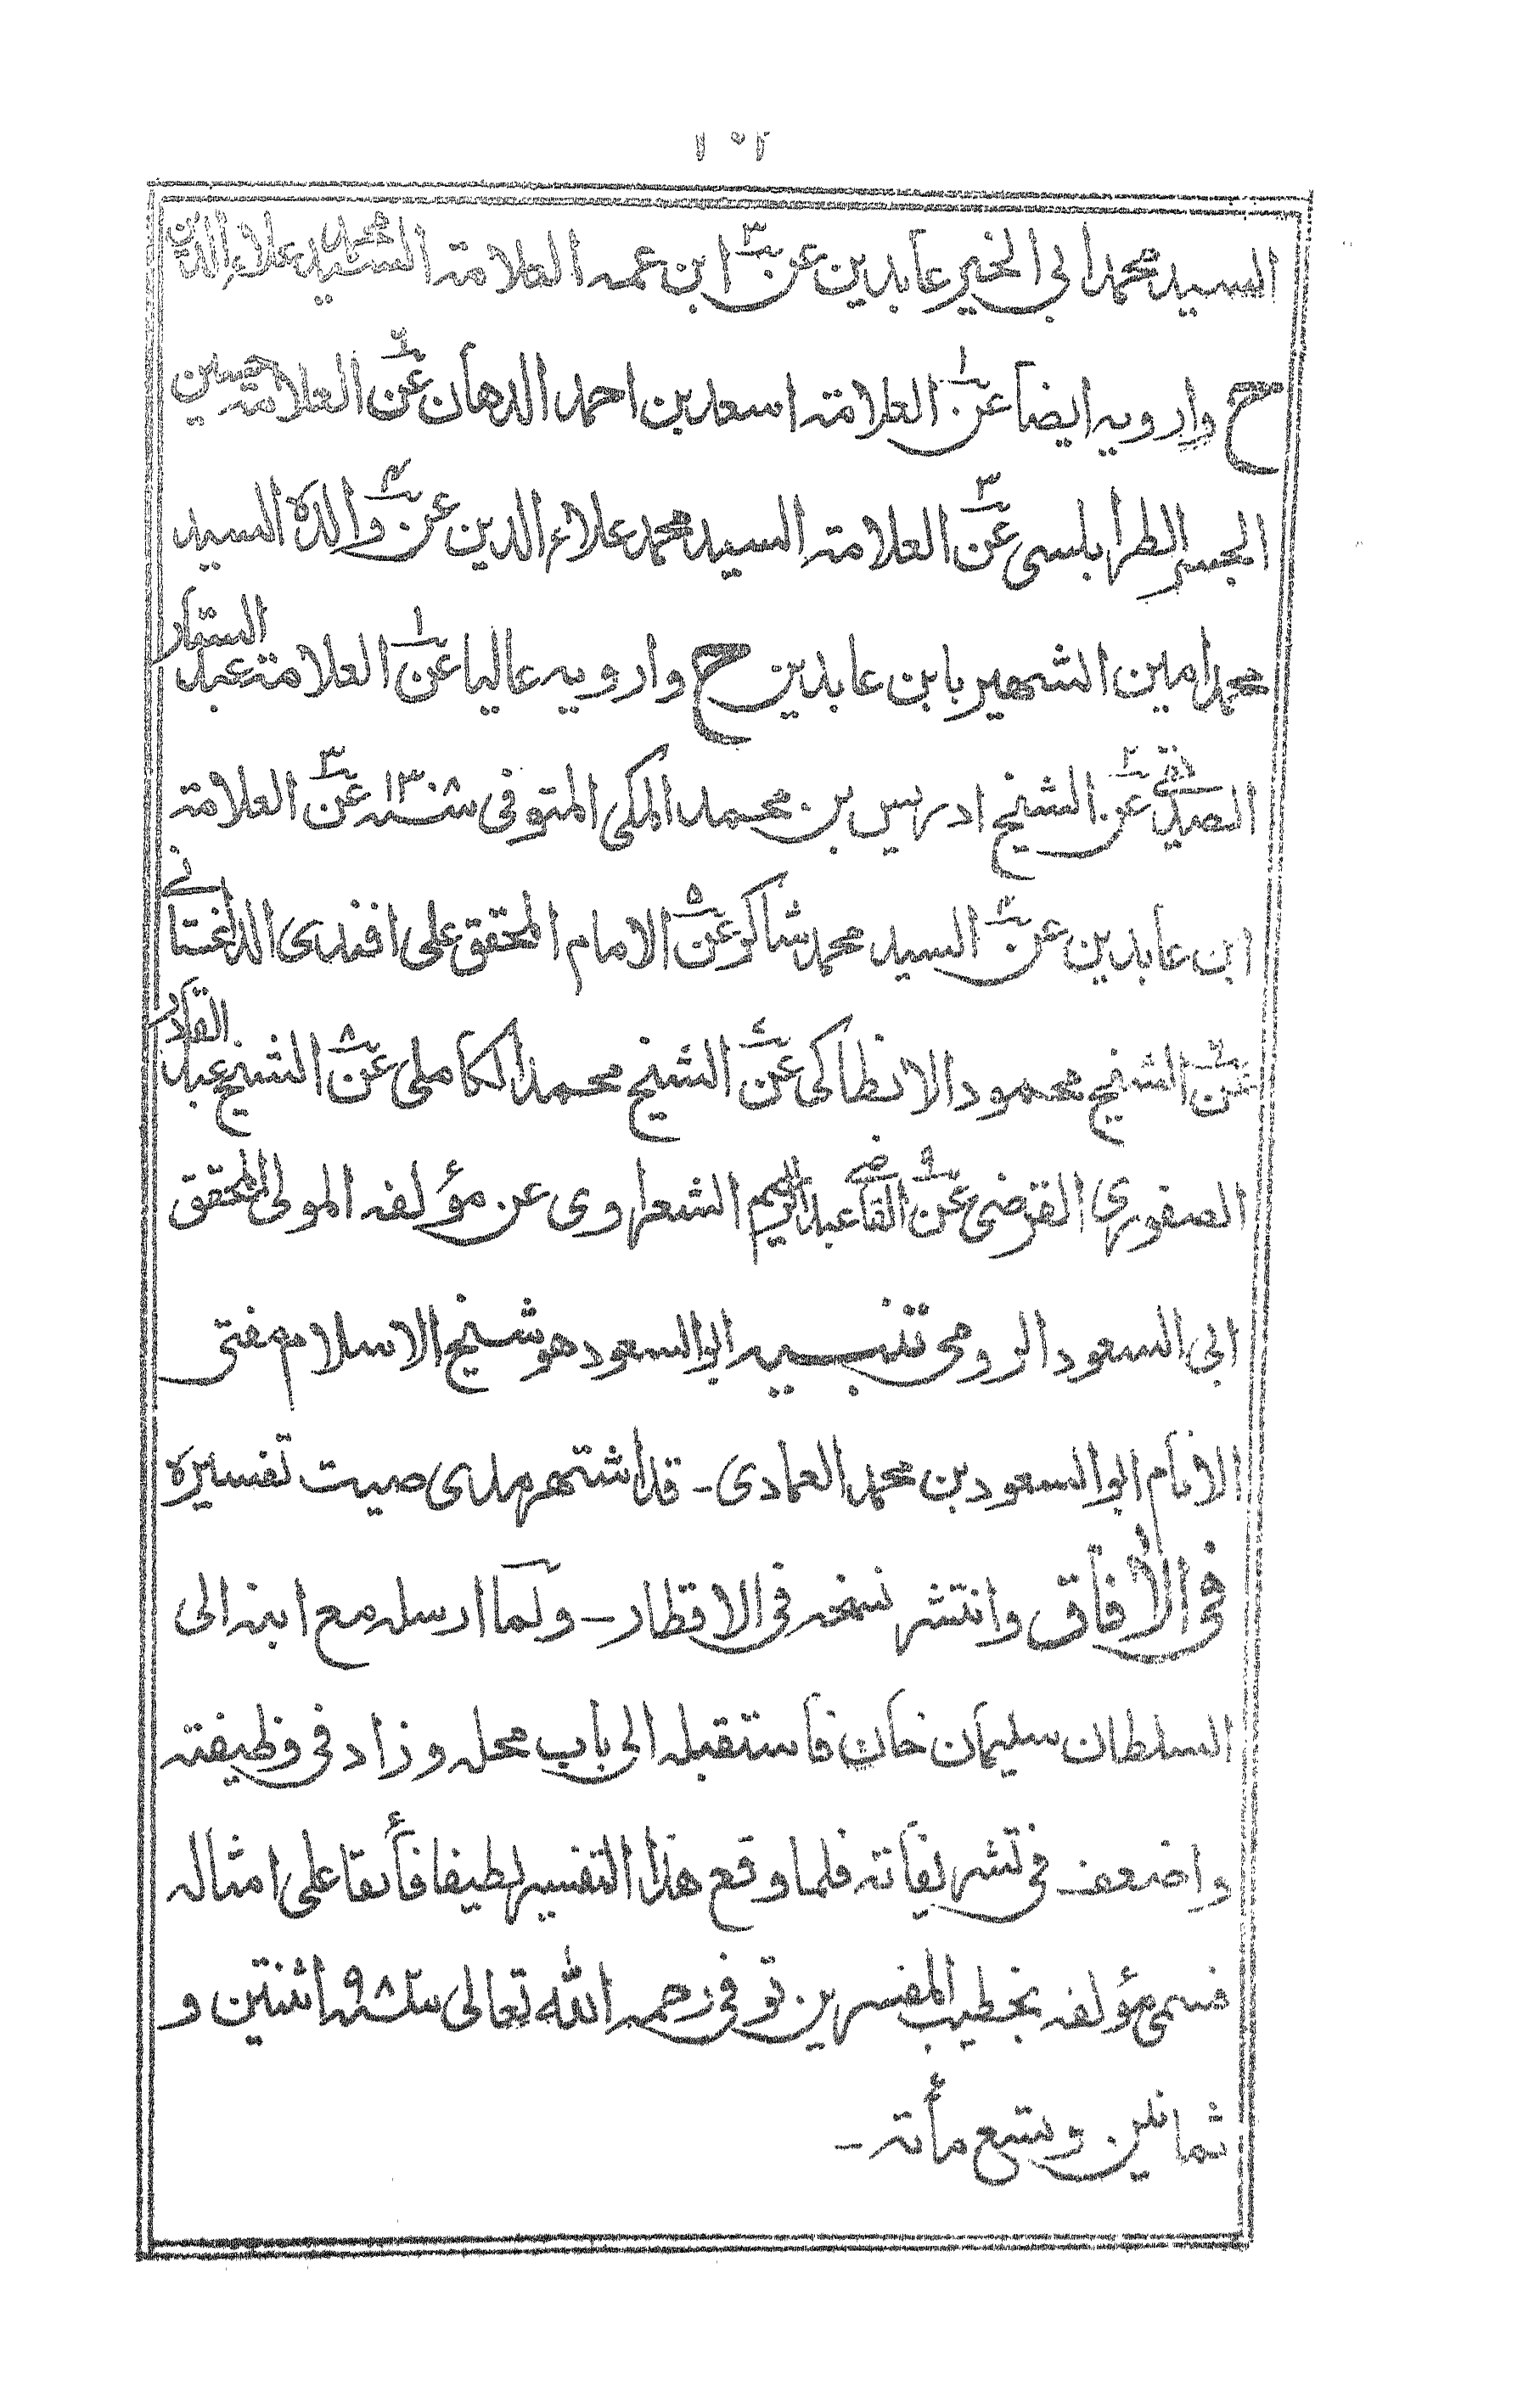 ١٠٢
السيد محمد ابي الخير عابدين عن٣ ابن عمه العلامة السيد محمد علاء الدين
ح وارويه ايضا عن١ العلامة اسعد بن احمد الدهان عن٢ العلامة حسين
الجسر الطرابلسى عن٣ العلامة السيد محمد علاء الدين عن٤ والده السيد
محمد امين الشهير بابن عابدين ح وارويه عاليا عن١ العلامة عبد الستار
الصديقي عن٢ الشيخ ادريس بن محمد المكى المتوفى سنة ١٣٠٠ عن٣ العلامة
ابن عابدين عن٤ السيد محمد شاكر عن٥ الامام المحقق على افندى الداغستاني
عن٦ الشيخ محمود الانطاكى عن٧ الشيخ محمد الكاملى عن٨ الشيخ عبد القادر
الصفورى الفرضى عن٩ القاضي عبد الرحيم الشعراوى عن مؤلفه المولى المحقق
ابى السعود الرومى تنبيه ابو السعود هو شيخ الاسلام مفتى
الانام ابو السعود بن محمد العمادى - قد اشتهر مدى صيت تفسيره
فى الآفاق وانتشر نسخه فى الاقطار - ولما ارسله مع ابنه الى
السلطان سليمان خان فاستقبله الى باب محله وزاد فى وظيفته
واضعف فى تشريفاته فلما وقع هذا التفسير لطيفا فائقا على امثاله
فسمى مؤلفه بخطيب المفسرين توفى رحمه الله تعالى سنة ٩٨٢ اثنتين و
ثمانين وتسع مأئة -